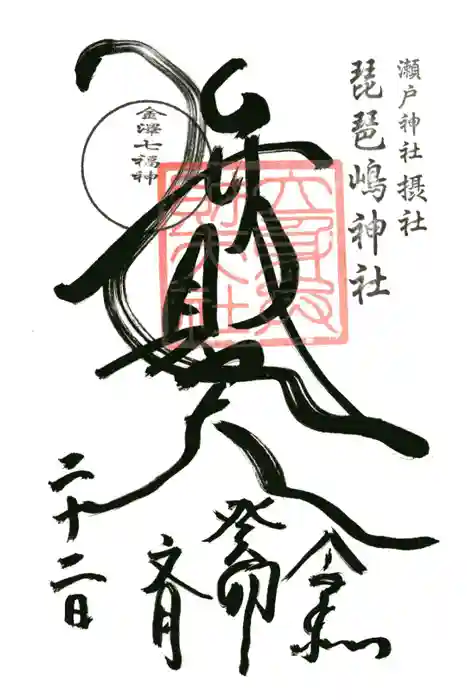 瀬戸神社 摂社
琵琶嶋神社
弁財天
金澤七福神
令和
癸卯
文月
二十二日